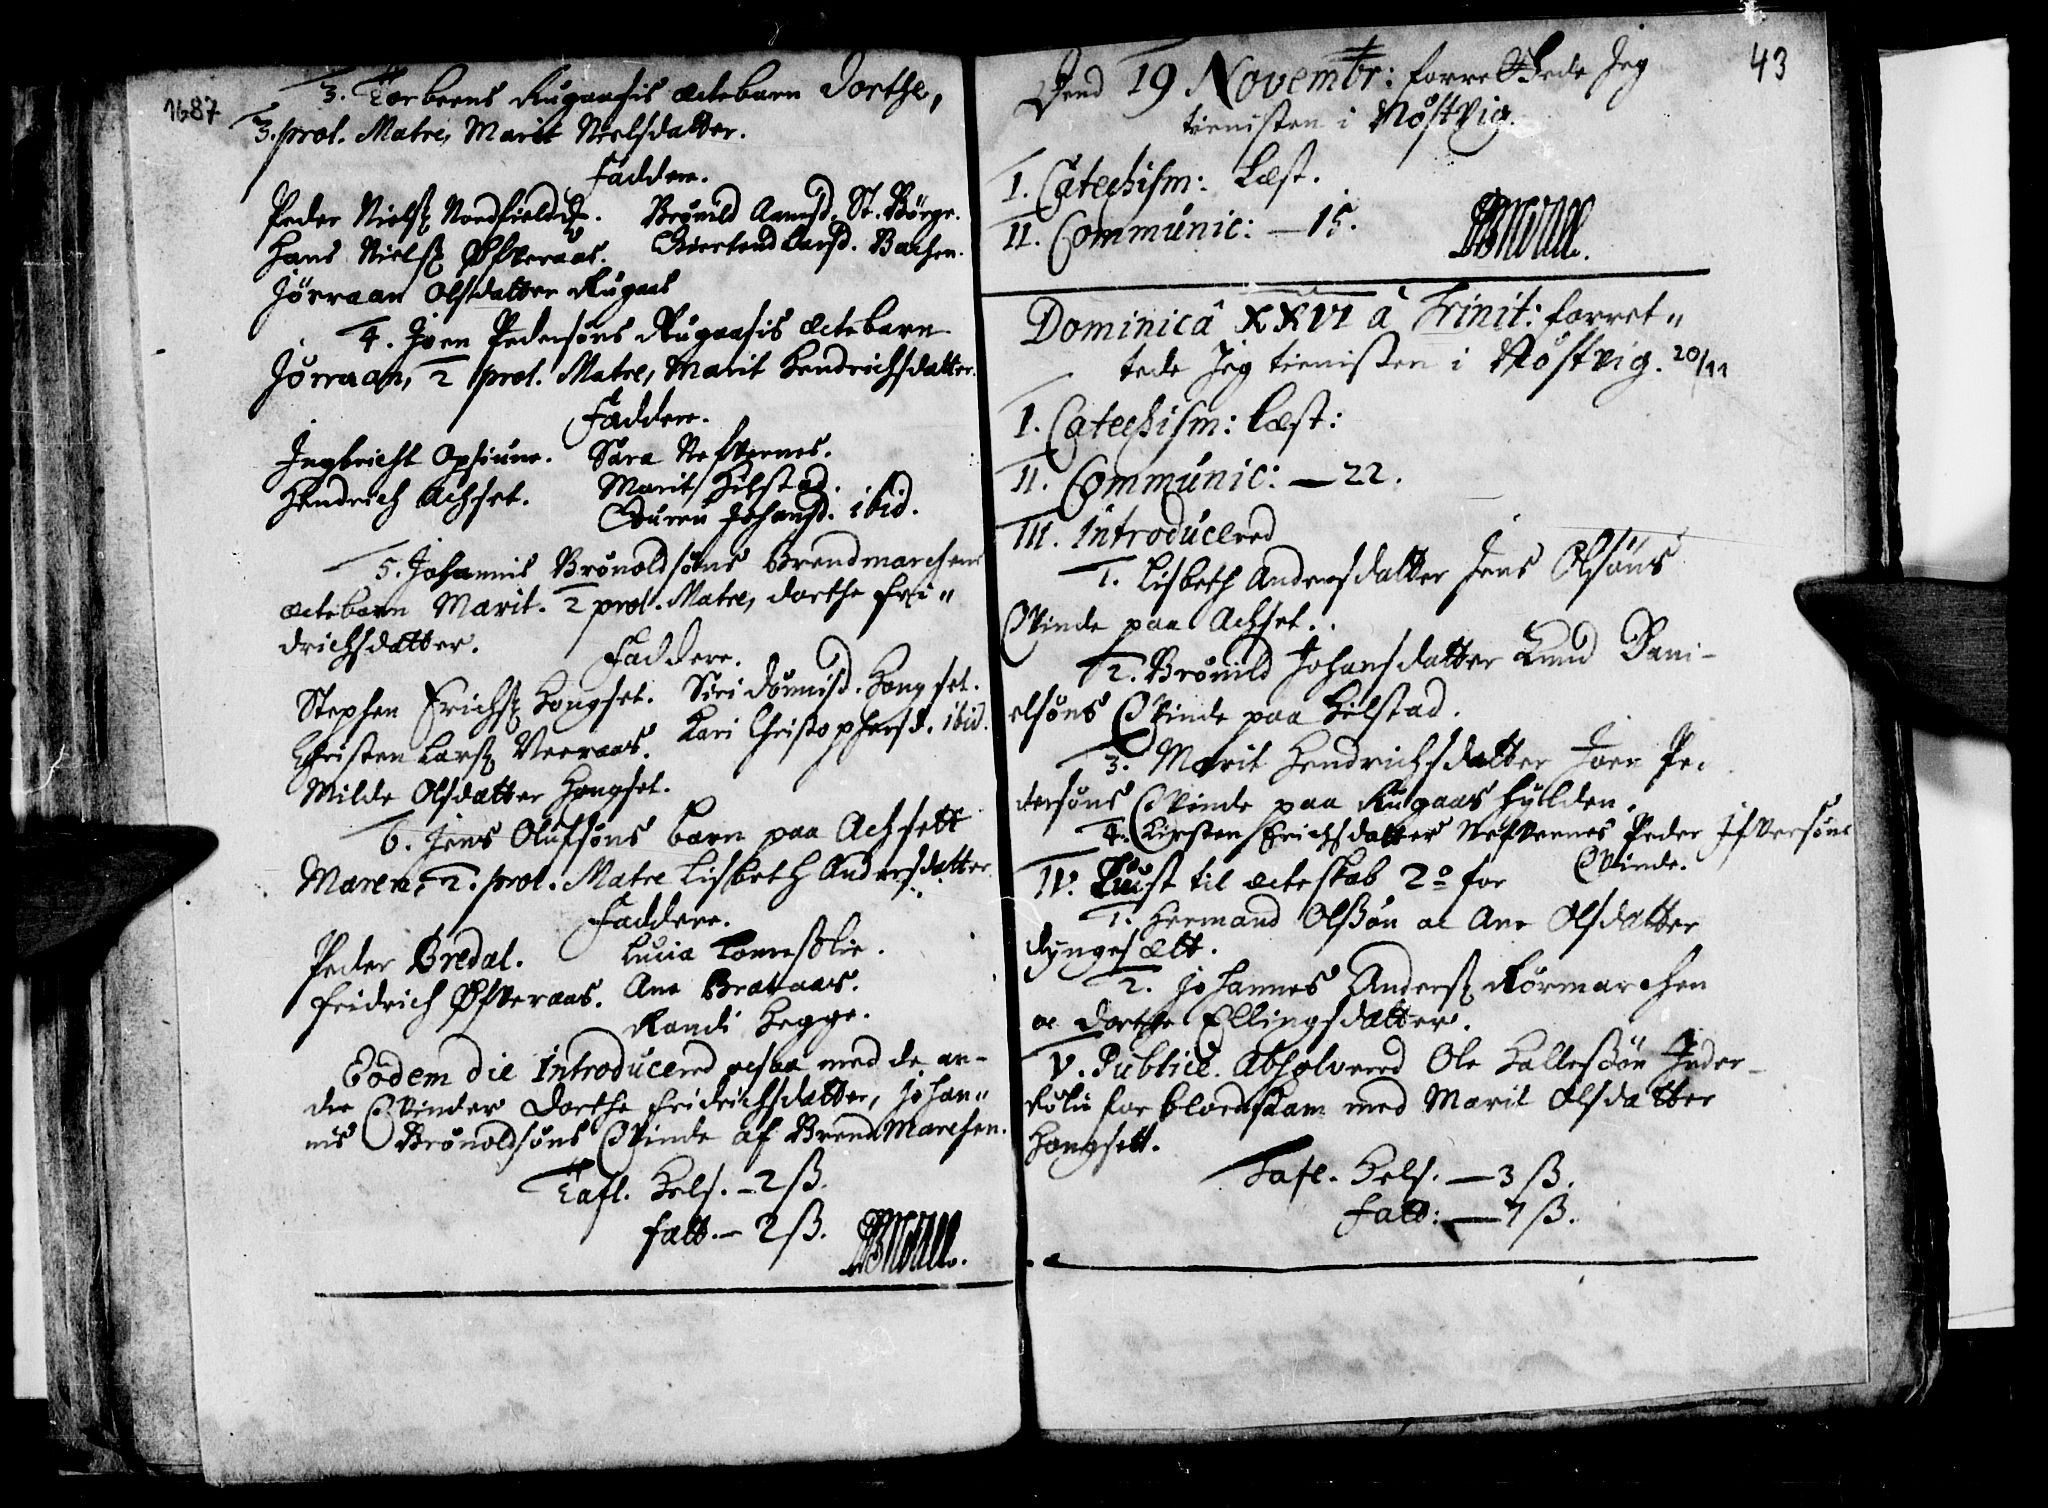 1687
3. Torbeens Rugaasis ectebarn Dorthe,
3. prol. Matre, Marit Nielsdatter.
Faddere.
Peder Niels. Nordfieldis. Brønild Aamisd. St. Børge.
Hans Niels. Øfveraas. Giertrud Larsd. Bachen.
Jørraan Olsdatter Rugaas
4. Joen Pedersøns Rugaasis ectebarn
Jørraan, 2 prol. Matre, Marit Hendrichsdatter.
Faddere.
Ingbricht Opsiune. Sara Nefvernes.
Hendrich Achset. Marit Hilstad.
Guren Johansd. ibid.
5. Johannis Brønoldsøns Brendmarchens
ectebarn Marit. 2 prol. Matre, Dorthe Fri"
drichsdatter.
Faddere.
Stephen Erichs. Hongset. Siri Dønnisd. Hongset.
Christen Lars. Veeraas. Kari Christophersd. ibid.
Milde Olsdatter Hongset.
6. Jens Olufsøns barn paa Achsett
Maren, 2. prol. Matre Lisbeth Andersdatter.
Faddere.
Peder Bredal. Lucia Lomessolie.
Fridrich Øfveraas. Ane Brataas.
Randi Hegge.
Eodem die Introducered ocsaa med de an-
dre Qvinder Dorthe Fridrichsdatter, Johan"
nis Brønoldsøns Qvinde af Brend Marchen.
Tafl. Hels. - 2 ß.
fatt. - 2 ß.
43
Dend 19 Novembr: forrettede Jeg
tienisten i Nøstvig.
I. Catechism: Læst.
II. Communic: — 15.
Dominicâ XXVI â Trinit: forret"
tede Jeg tienisten i Nøstvig. 20/11
I. Catechism: Læst:
II. Communic: — 22.
III. Introducered
1. Lisbeth Andersdatter Jens Olsøns
Qvinde paa Achset.
2. Brønild Johansdatter Knud Dani-
elsøns Qvinde paa Hilstad.
3. Marit Hendrichsdatter Joen Pe-
dersøns Qvinde paa Rugaas fylden.
4. Kirsten Erichsdatter Nefvernes Peder Ifversøns
Qvinde.
IV. Liust til ecteskab 2º for
1. Hermand Olssøn oc Ane Olsdatter
Ryngesætt.
2. Johannes Anders. Rørmarchen
oc Dorthe Ellingsdatter.
V. Publicè absolvered Ole Hallessøn Inder-
Rølii for blodskam med Marit Olsdatter
Hongsett.
Tafl. Hels. — 3 ß.
fatt: — 7 ß.